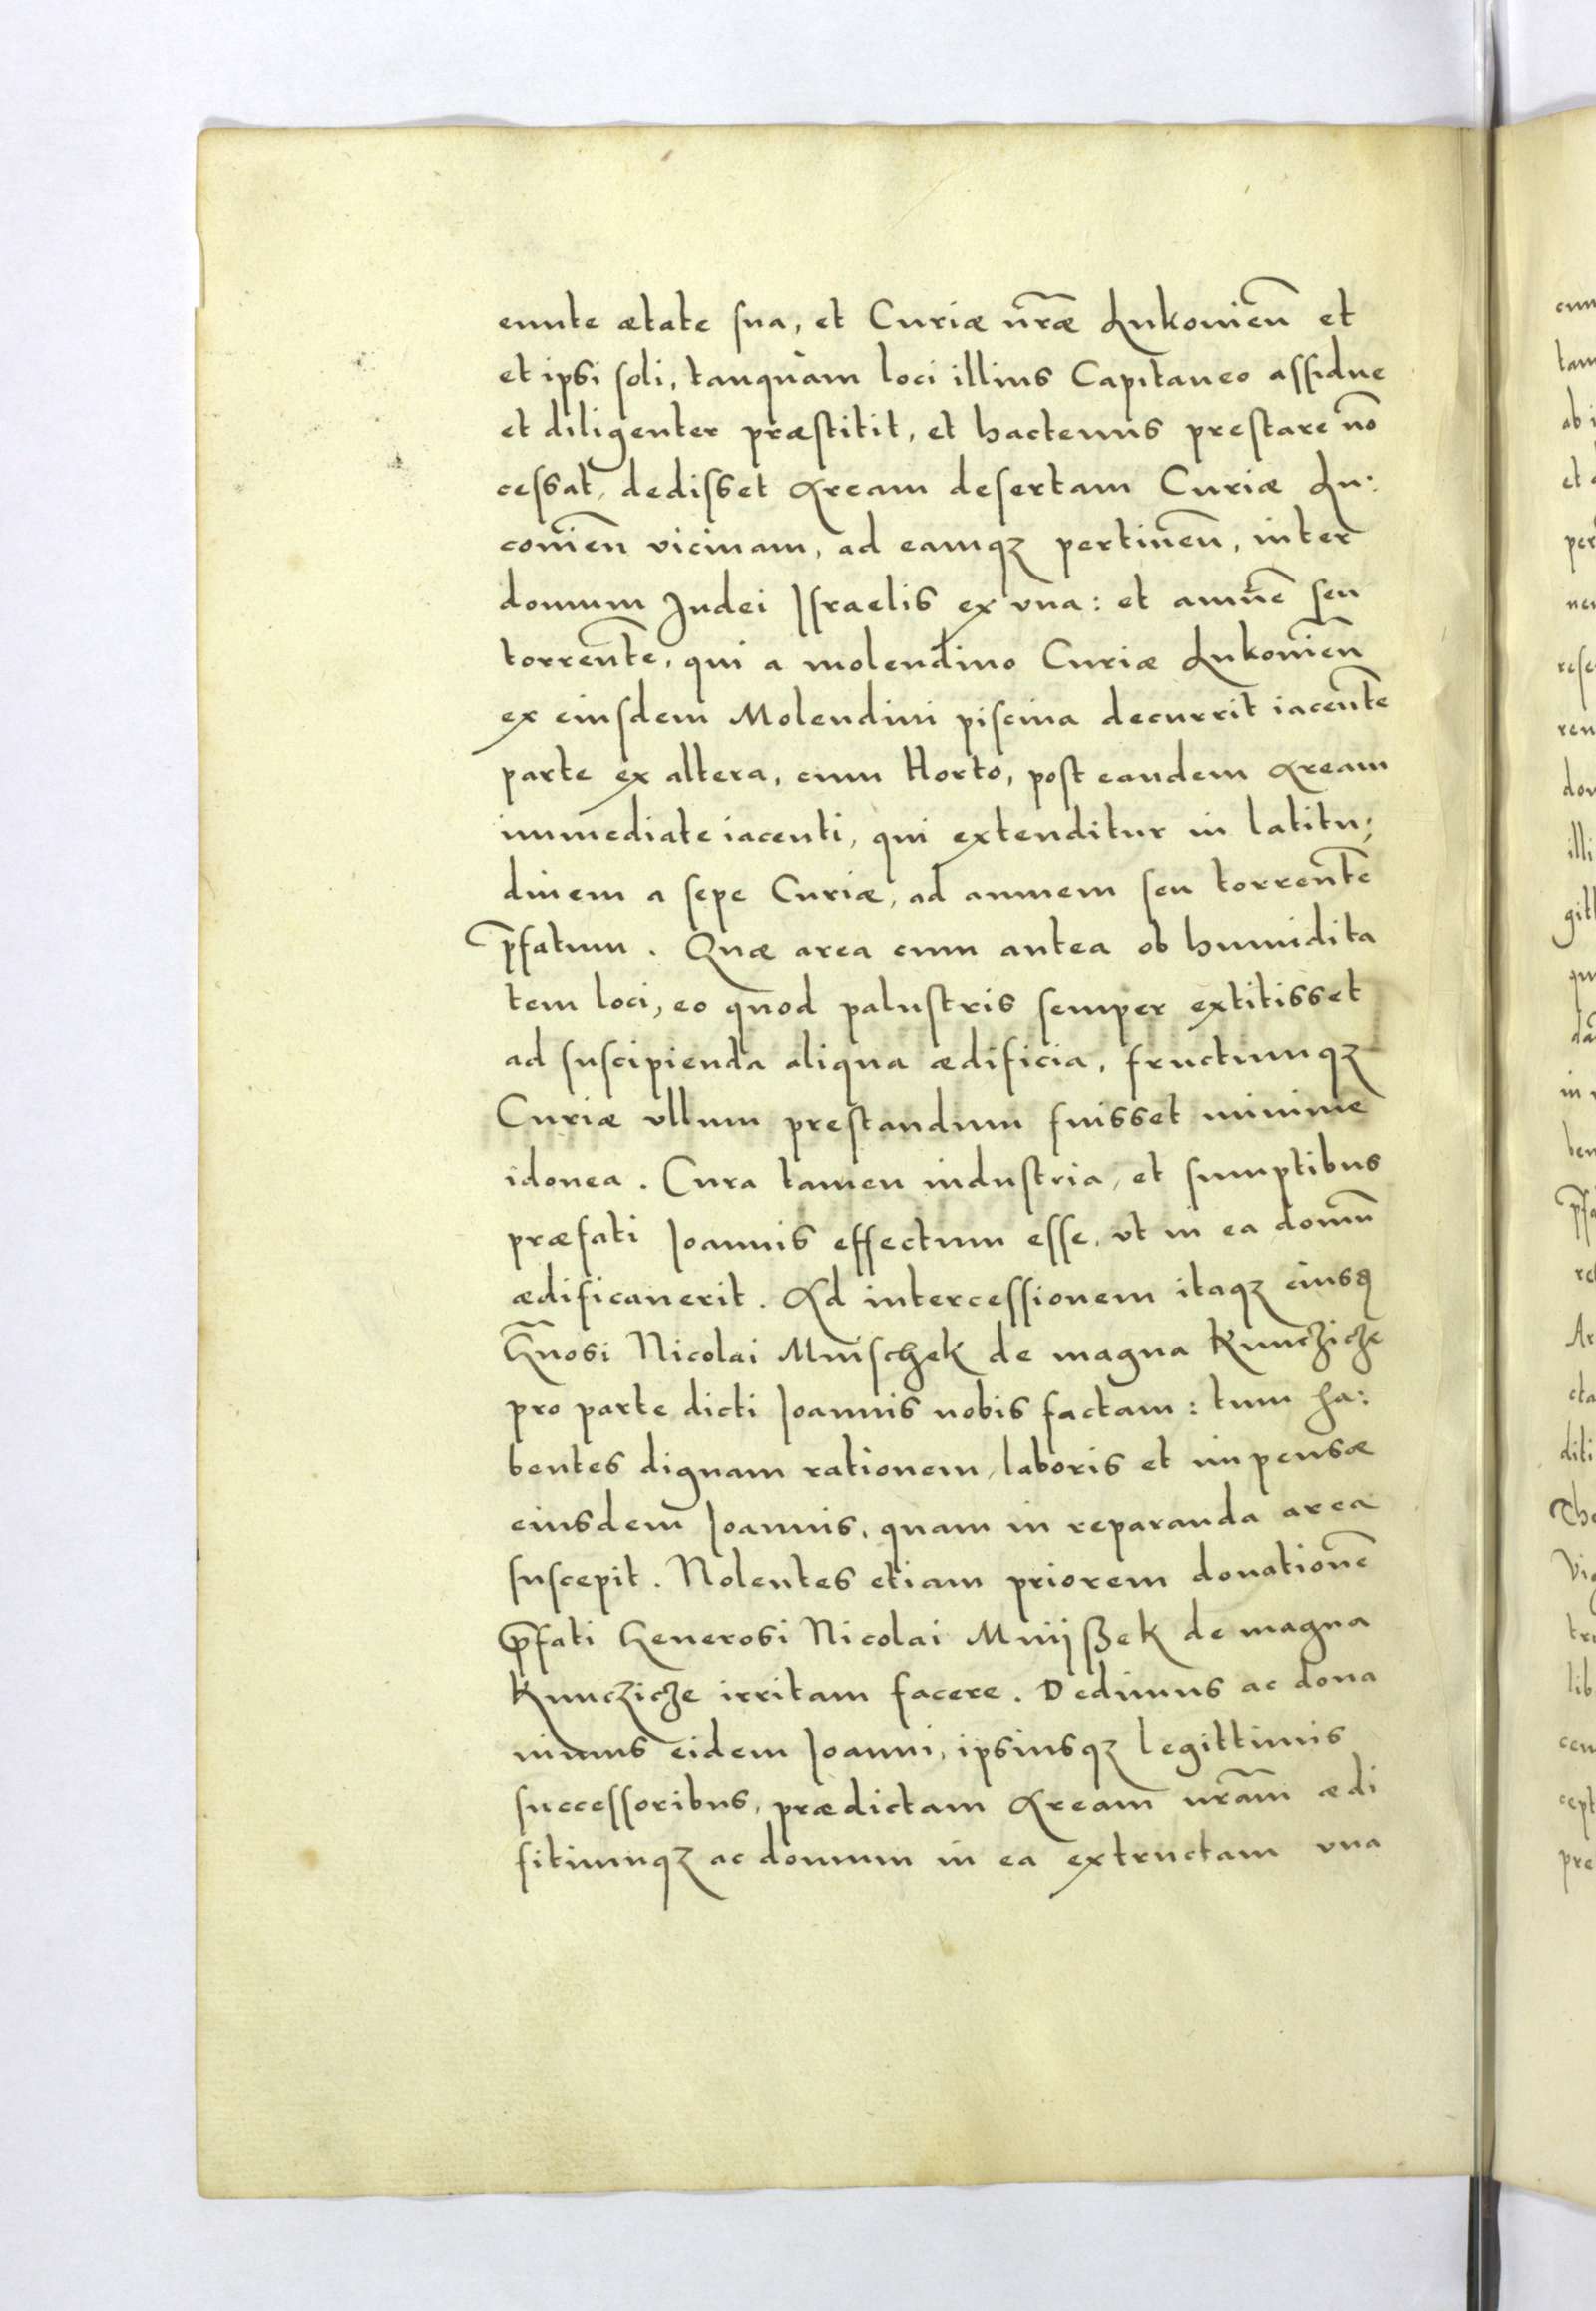 eunte ætate sua, et Curiæ nr̄æ Lukouieñ et
et ipsi soli, tanquàm loci illius Capitaneo assidue
et diligenter præstitit, et hactenus prestare nō
cessat, dedisset Aream desertam Curiæ Lu:
couieñ vicinam, ad eamqꝫ pertineñ, inter
domum Judei Israelis ex vna: et amnē seu
torrentē, qui a molendino Curiæ Lukouieñ
ex eiusdem Molendini piscina decurrit iacentē
parte ex altera, cum Horto, post eandem Aream
immediate iacenti, qui extenditur in latitu;
dinem a sepe Curiæ, ad amnem seu torrentē
p̄fatum. Quæ area cum antea ob humidita
tem loci, eo quod palustris semper extitisset
ad suscipienda aliqua ædificia, fructumqꝫ
Curiæ vllum prestandum fuisset minime
idonea. Cura tamen industria, et sumptibus
præfati Joannis effectum esse, vt in ea domū
ædificauerit. Ad intercessionem itaqꝫ eiusd
Gn̄osi Nicolai Mnischek de magna Kunczicze
pro parte dicti Joannis nobis factam: tum ha:
bentes dignam rationem, laboris et impensæ
eiusdem Joannis, quam in reparanda area
suscepit. Nolentes etiam priorem donationē
p̄fati Generosi Nicolai Mnijßek de magna
Kunczicze irritam facere. Dedimus ac dona
uimus eidem Joanni, ipsiusqꝫ legittimis
successoribus, prædictam Aream nrām ædi
fitiumqꝫ ac domum in ea extructam vna